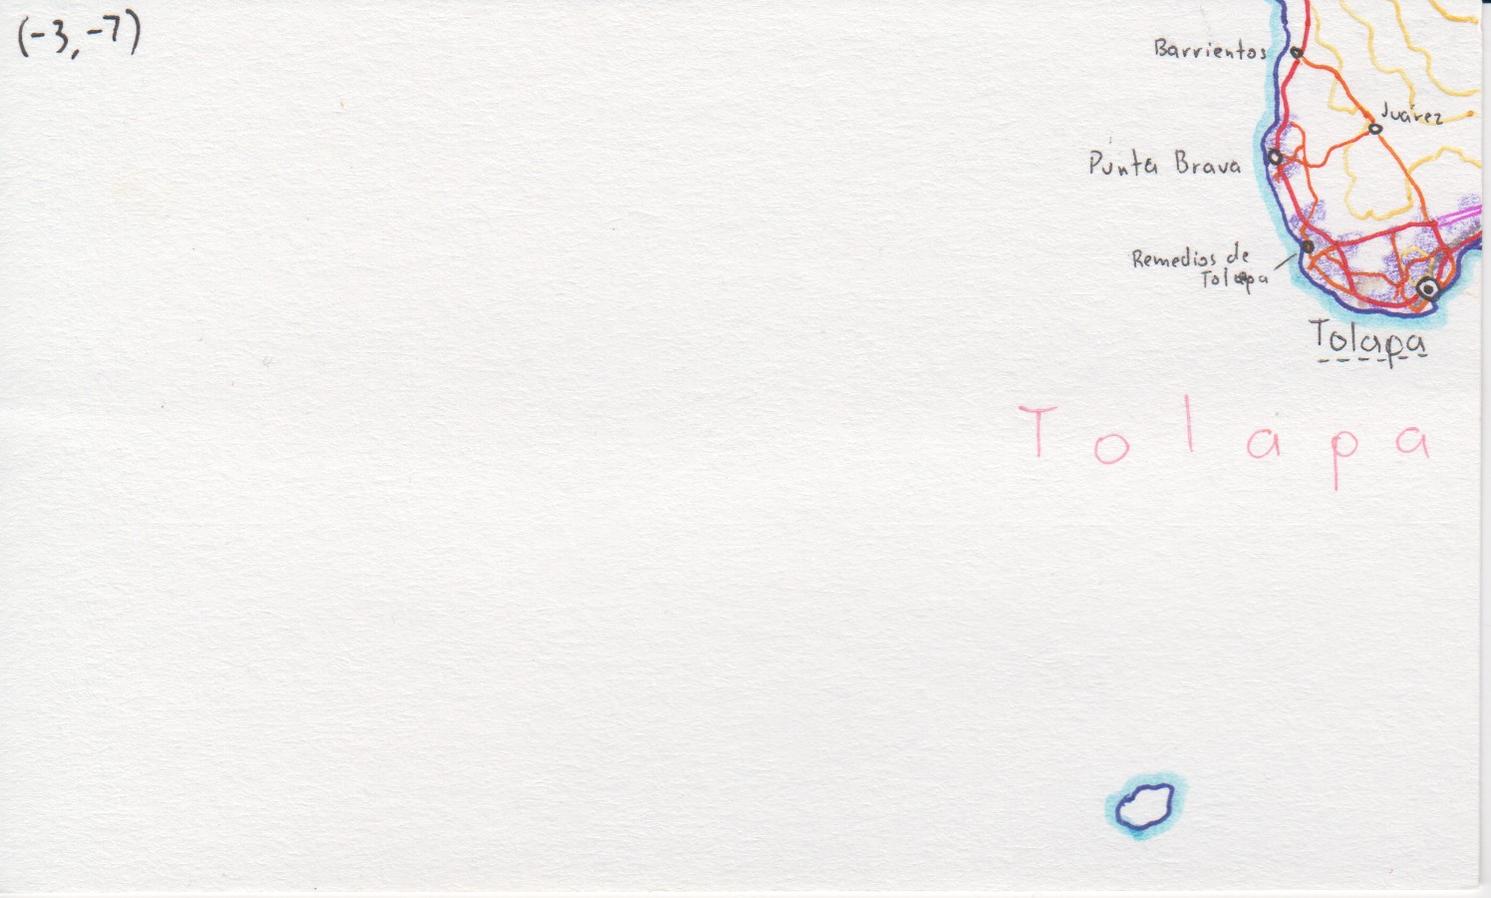 (-3,-7)
Barrientos
Juárez
Punta Brava
Remedios de
Tolapa
Tolapa
Tolapa